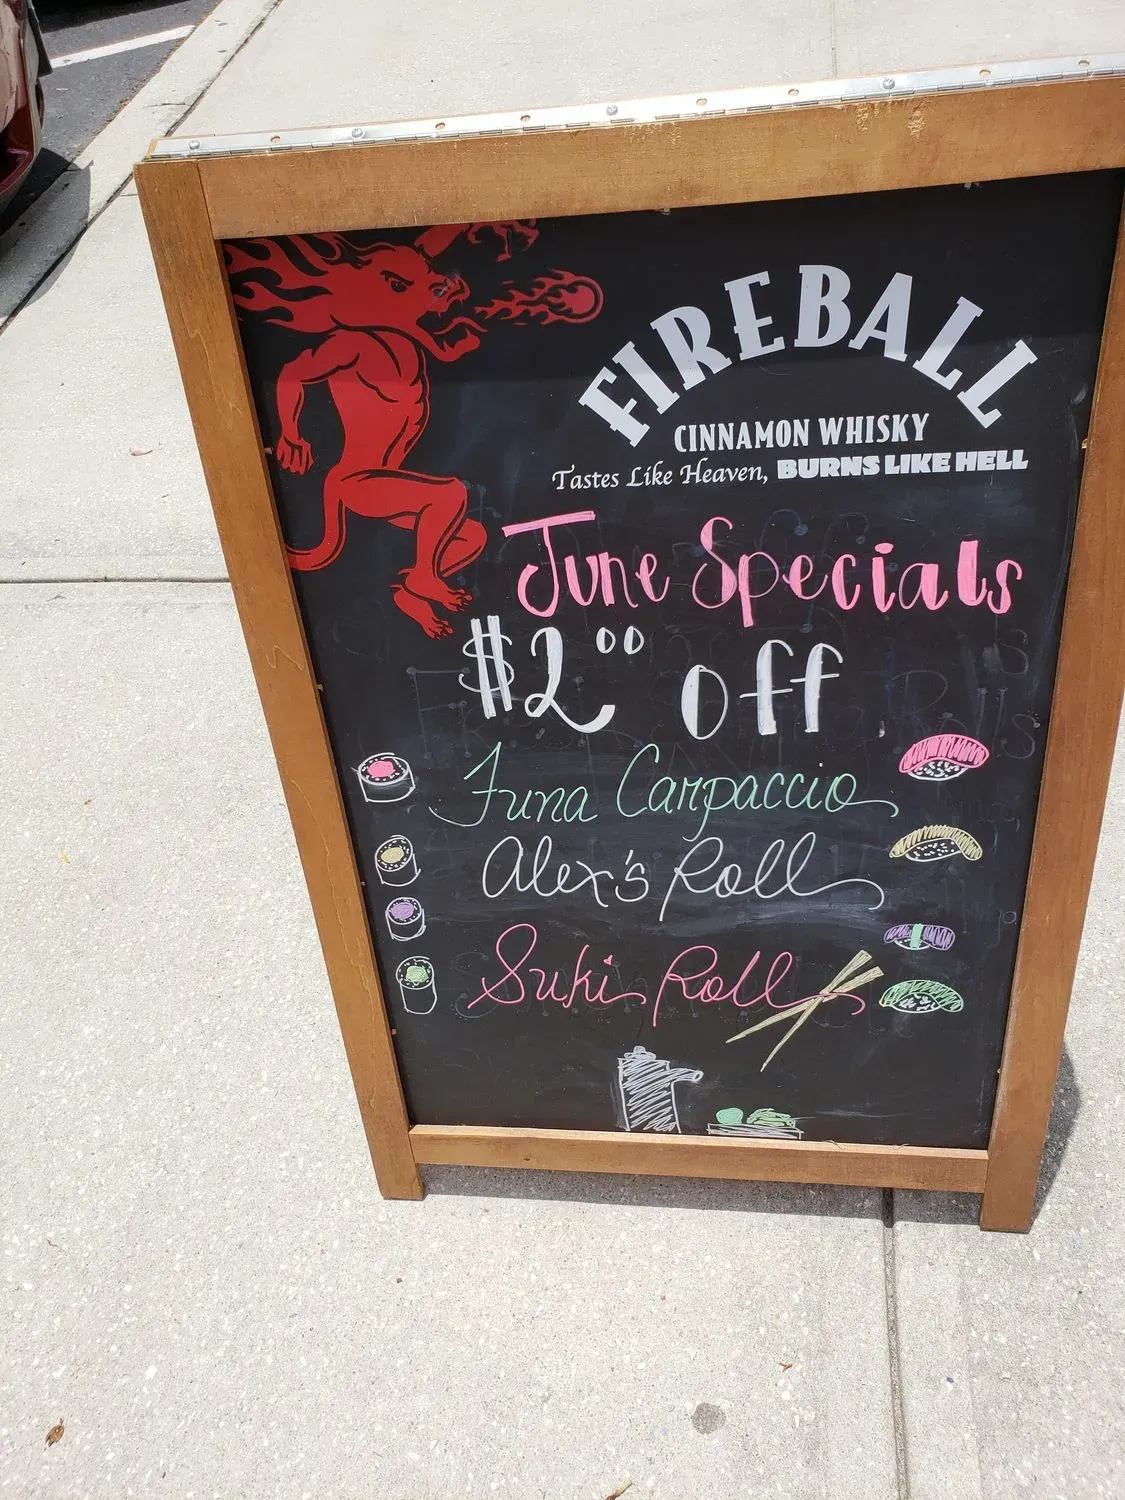 FIREBALL
CINNAMON WHISKY
Tastes Like Heaven, BURNS LIKE HELL
June Specials
$2⁰⁰ off
Tuna Carpaccio
Alex's Roll
Suki Roll